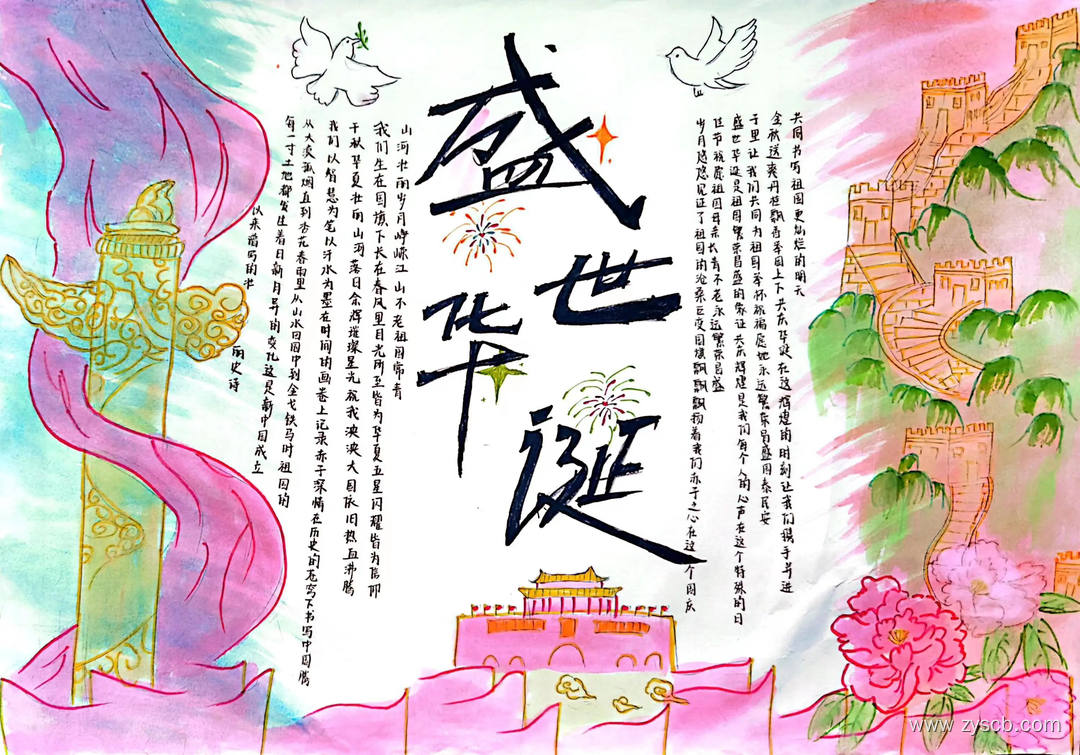 盛世华诞
共同书写祖国更灿烂的明天
金秋送爽丹桂飘香举国上下共庆华诞在这辉煌的时刻让我们携手并进
千里让我们共同为祖国举杯祝福愿她永远繁荣昌盛国泰民安
盛世华诞是祖国繁荣昌盛的象征共庆辉煌是我们每个人的心声在这个特殊的日
佳节祝愿祖国母亲长青不老永远繁荣昌盛
岁月悠悠见证了祖国的沧桑巨变国旗飘飘飘扬着我们赤子之心在这个国庆
山河壮丽岁月峥嵘江山不老祖国常青
我们生在国旗下长在春风里目光所至皆为华夏五星闪耀皆为信仰
千秋华夏壮丽山河落日余辉璀璨星光祝我泱泱大国依旧热血沸腾
我们以智慧为笔以汗水为墨在时间的画卷上记录赤子深情在历史的苍穹下书写中国腾
从大漠孤烟直到杏花春雨里从山水田园中到金戈铁马时祖国的
每一寸土地都发生着日新月异的变化这是新中国成立
以来谱写的壮
丽史诗
www.zyscb.com